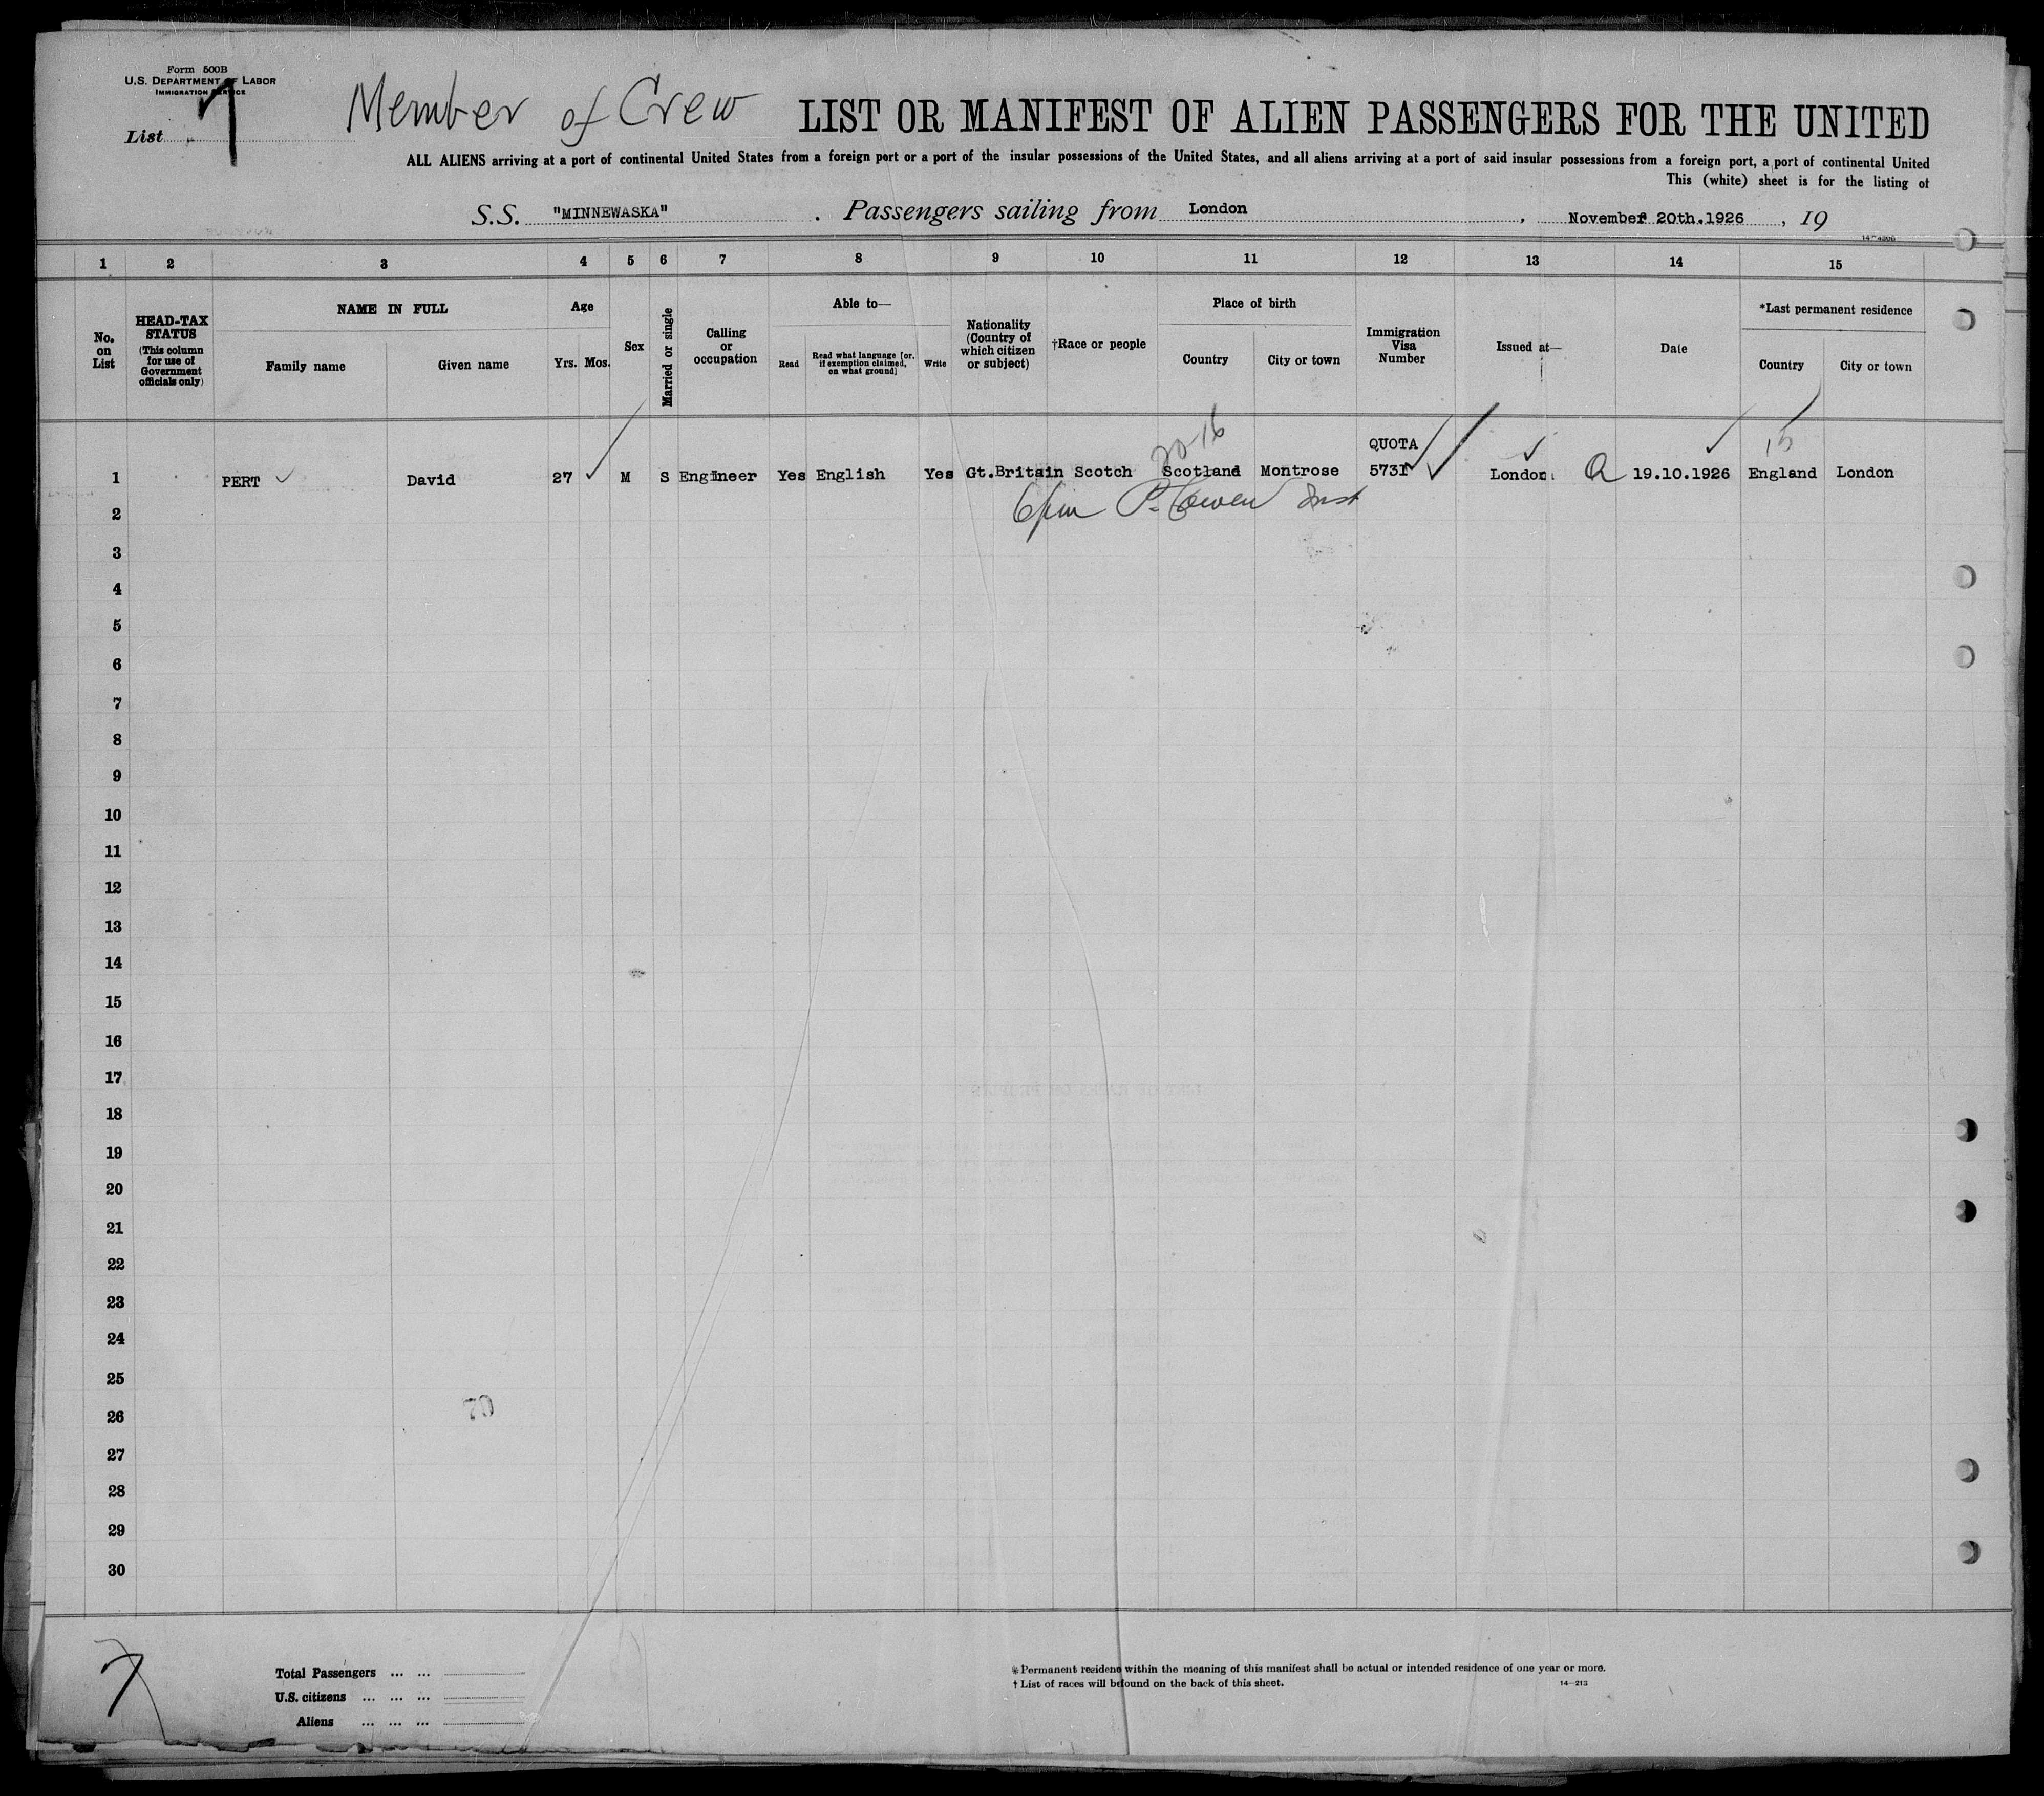 Form 500B
U.S. DEPARTMENT OF LABOR
IMMIGRATION SERVICE
List 7
Member of Crew
LIST OR MANIFEST OF ALIEN PASSENGERS FOR THE UNITED
ALL ALIENS arriving at a port of continental United States from a foreign port or a port of the insular possessions of the United States, and all aliens arriving at a port of said insular possessions from a foreign port, a port of continental United
This (white) sheet is for the listing of
S.S. "MINNEWASKA" . Passengers sailing from London , November 20th.1926 , 19
1 2 3 4 5 6 7 8 9 10 11 12 13 14 15
No. on List
HEAD-TAX STATUS
(This column for use of Government officials only)
NAME IN FULL
Family name Given name
Age
Yrs. Mos.
Sex
Married or single
Calling or occupation
Able to—
Read
Read what language [or, if exemption claimed, on what ground]
Write
Nationality (Country of which citizen or subject)
†Race or people
Place of birth
Country City or town
Immigration Visa Number
Issued at—
Date
*Last permanent residence
Country City or town
20-16 QUOTA 15
1 PERT David 27 M S Engineer Yes English Yes Gt.Britain Scotch Scotland Montrose 5731 London Q 19.10.1926 England London
2
3
4
5
6
7
8
9
10
11
12
13
14
15
16
17
18
19
20
21
22
23
24
25
26
27
28
29
30
7
Total Passengers ... ...
U.S. citizens ... ... ...
Aliens ... ... ...
* Permanent residence within the meaning of this manifest shall be actual or intended residence of one year or more.
† List of races will be found on the back of this sheet.
14—213